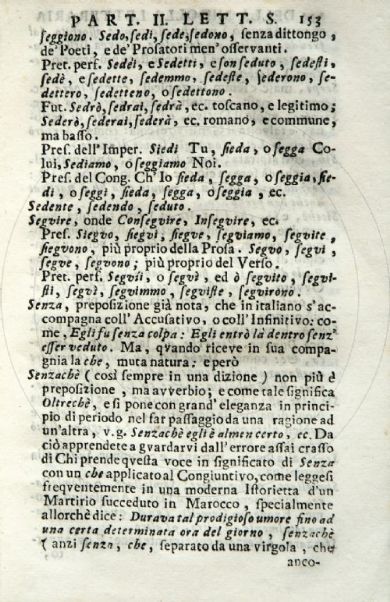 PART. II. LETT. S. 153
seggiono. Sedo, sedi, sede, sedono, senza dittongo,
de' Poeti, e de' Prosatori men' osservanti.
Pret. perf. Sedèi, e Sedetti, e son seduto, sedesti,
sedè, e sedette, sedemmo, sedeste, sederono, se-
dettero, sedetteno, o sedettono.
Fut. Sedrò, sedrai, sedrà, ec. toscano, e legitimo;
Sederò, sederai, sederà, ec. romano, e commune,
ma basso.
Pres. dell' Imper. Siedi Tu, sieda, o segga Co-
lui, Sediamo, o seggiamo Noi.
Pres. del Cong. Ch' Io sieda, segga, o seggia, sie-
di, o seggi, sieda, segga, o seggia, ec.
Sedente, sedendo, seduto.
Segvire, onde Consegvire, Insegvire, ec.
Pres. Siegvo, siegvi, siegve, segviamo, segvite,
siegvono, più proprio della Prosa. Segvo, segvi,
segve, segvono; più proprio del Verso.
Pret. perf. Segvii, o segvì, ed ò segvito, segvi-
sti, segvì, segvimmo, segviste, segvirono.
Senza, preposizione già nota, che in italiano s' ac-
compagna coll' Accusativo, o coll' Infinitivo: co-
me, Egli fu senza colpa: Egli entrò là dentro senz'
esser veduto. Ma, qvando riceve in sua compa-
gnia la che, muta natura: e però
Senzachè (così sempre in una dizione) non più è
preposizione, ma avverbio; e come tale significa
Oltrechè, e si pone con grand' eleganza in princi-
pio di periodo nel far passaggio da una ragione ad
un'altra, v. g. Senzachè egli è almen certo, ec. Da
ciò apprendete a gvardarvi dall'errore assai crasso
di Chi prende qvesta voce in significato di Senza
con un che applicato al Congiuntivo, come leggesi
freqventemente in una moderna Istorietta d'un
Martirio succeduto in Marocco, specialmente
allorchè dice: Durava tal prodigioso umore fino ad
una certa determinata ora del giorno, senzachè
(anzi senza, che, separato da una virgola, che
anco-